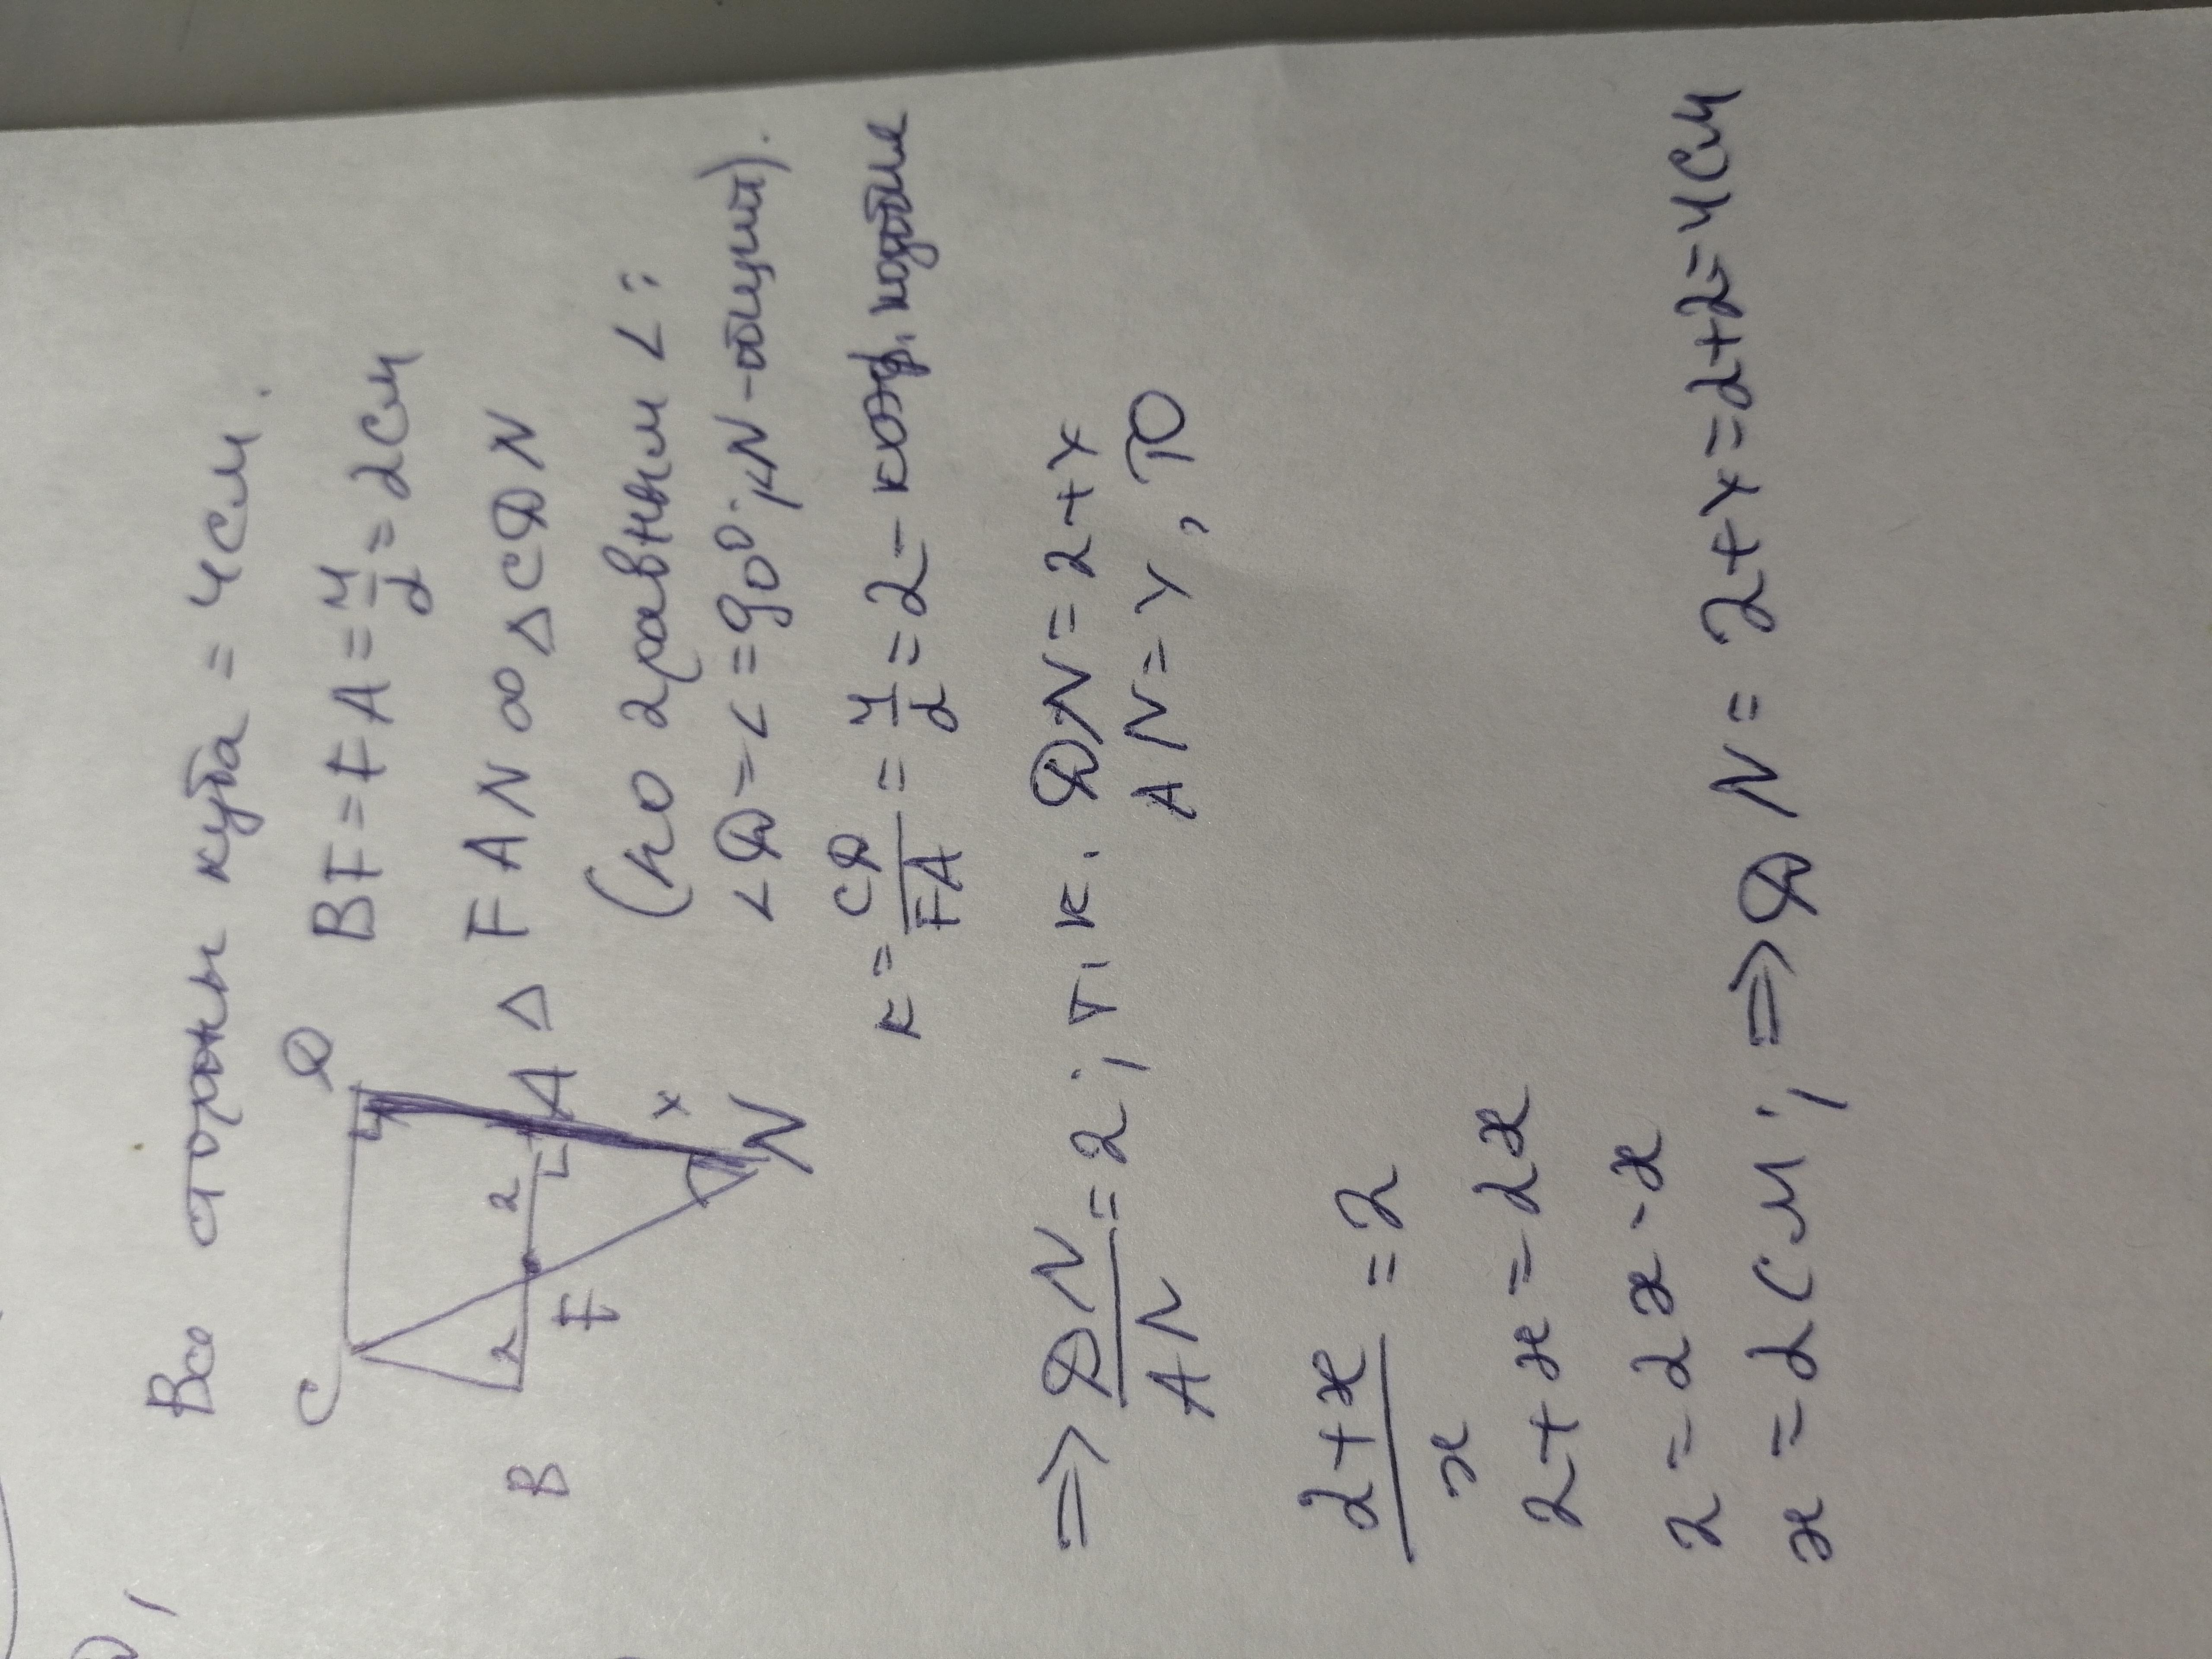 Все стороны куба = 4см.
C D
BF = FA = 4/2 = 2см
4
2 2
B F A
△ FAN ∞ △ CDN
x
N
(по 2 равным ∠:
∠D = ∠ = 90°; ∠N - общий).
к = CD/FA = 4/2 = 2 - коэф. подобия
=> DN/AN = 2; т.к. DN = 2 + x
AN = x, то
2+x/x = 2
2 + x = 2x
2 = 2x - x
x = 2см; => DN = 2 + x = 2 + 2 = 4см